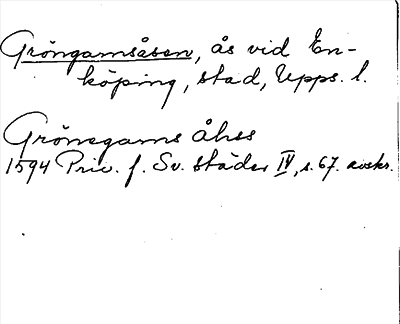 Gröngarnsåsen, ås vid En-
köping, stad, Upps. l.
Grönegarns Åhss
1594 Priv. f. Sv. städer IV, s. 67. avskr.